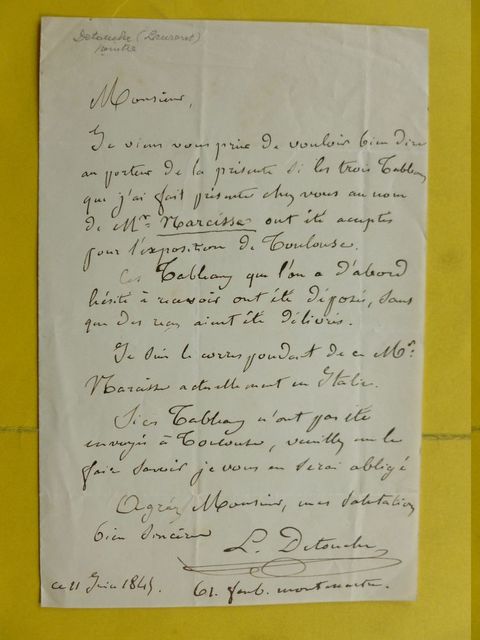 Detouche (Laurent)
peintre
Monsieur,
Je viens vous prier de vouloir bien dire
au porteur de la présente si les trois Tableaux
que j'ai fait présenter chez vous au nom
de Mr. Narcisse ont été acceptés
pour l'exposition de Toulouse.
Ces Tableaux que l'on a d'abord
hésité à recevoir ont été déposés, sans
que des reçus aient été délivrés.
Je suis le correspondant de ce Mr.
Narcisse actuellement en Italie.
Si ces Tableaux n'ont pas été
envoyés à Toulouse, veuillez me le
faire savoir je vous en serai obligé
Agréez Monsieur, mes salutations
bien sincères
L. Detouche
ce 11 Juin 1845.
61. faub. montmartre.